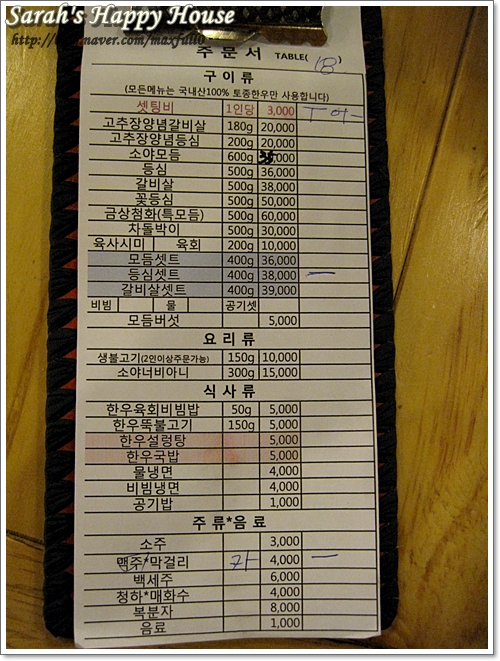 Sarah's Happy House
주 문 서 TABLE( 18 )
구 이 류
(모든메뉴는 국내산100% 토종한우만 사용합니다)
셋팅비 1인당 3,000
고추장양념갈비살 180g 20,000
고추장양념등심 200g 20,000
소야모듬 600g
등심 500g 36,000
갈비살 500g 38,000
꽃등심 500g 50,000
금상첨화(특모듬) 500g 60,000
차돌박이 500g 30,000
육사시미 육회 200g 10,000
모듬셋트 400g 36,000
등심셋트 400g 38,000 一
갈비살셋트 400g 39,000
비빔 물 공기셋
모듬버섯 5,000
요 리 류
생불고기(2인이상주문가능) 150g 10,000
소야너비아니 300g 15,000
식 사 류
한우육회비빔밥 50g 5,000
한우뚝불고기 150g 5,000
한우설렁탕 5,000
한우국밥 5,000
물냉면 4,000
비빔냉면 4,000
공기밥 1,000
주 류*음 료
소주 3,000
맥주*막걸리 4,000 一
백세주 6,000
청하*매화수 4,000
복분자 8,000
음료 1,000